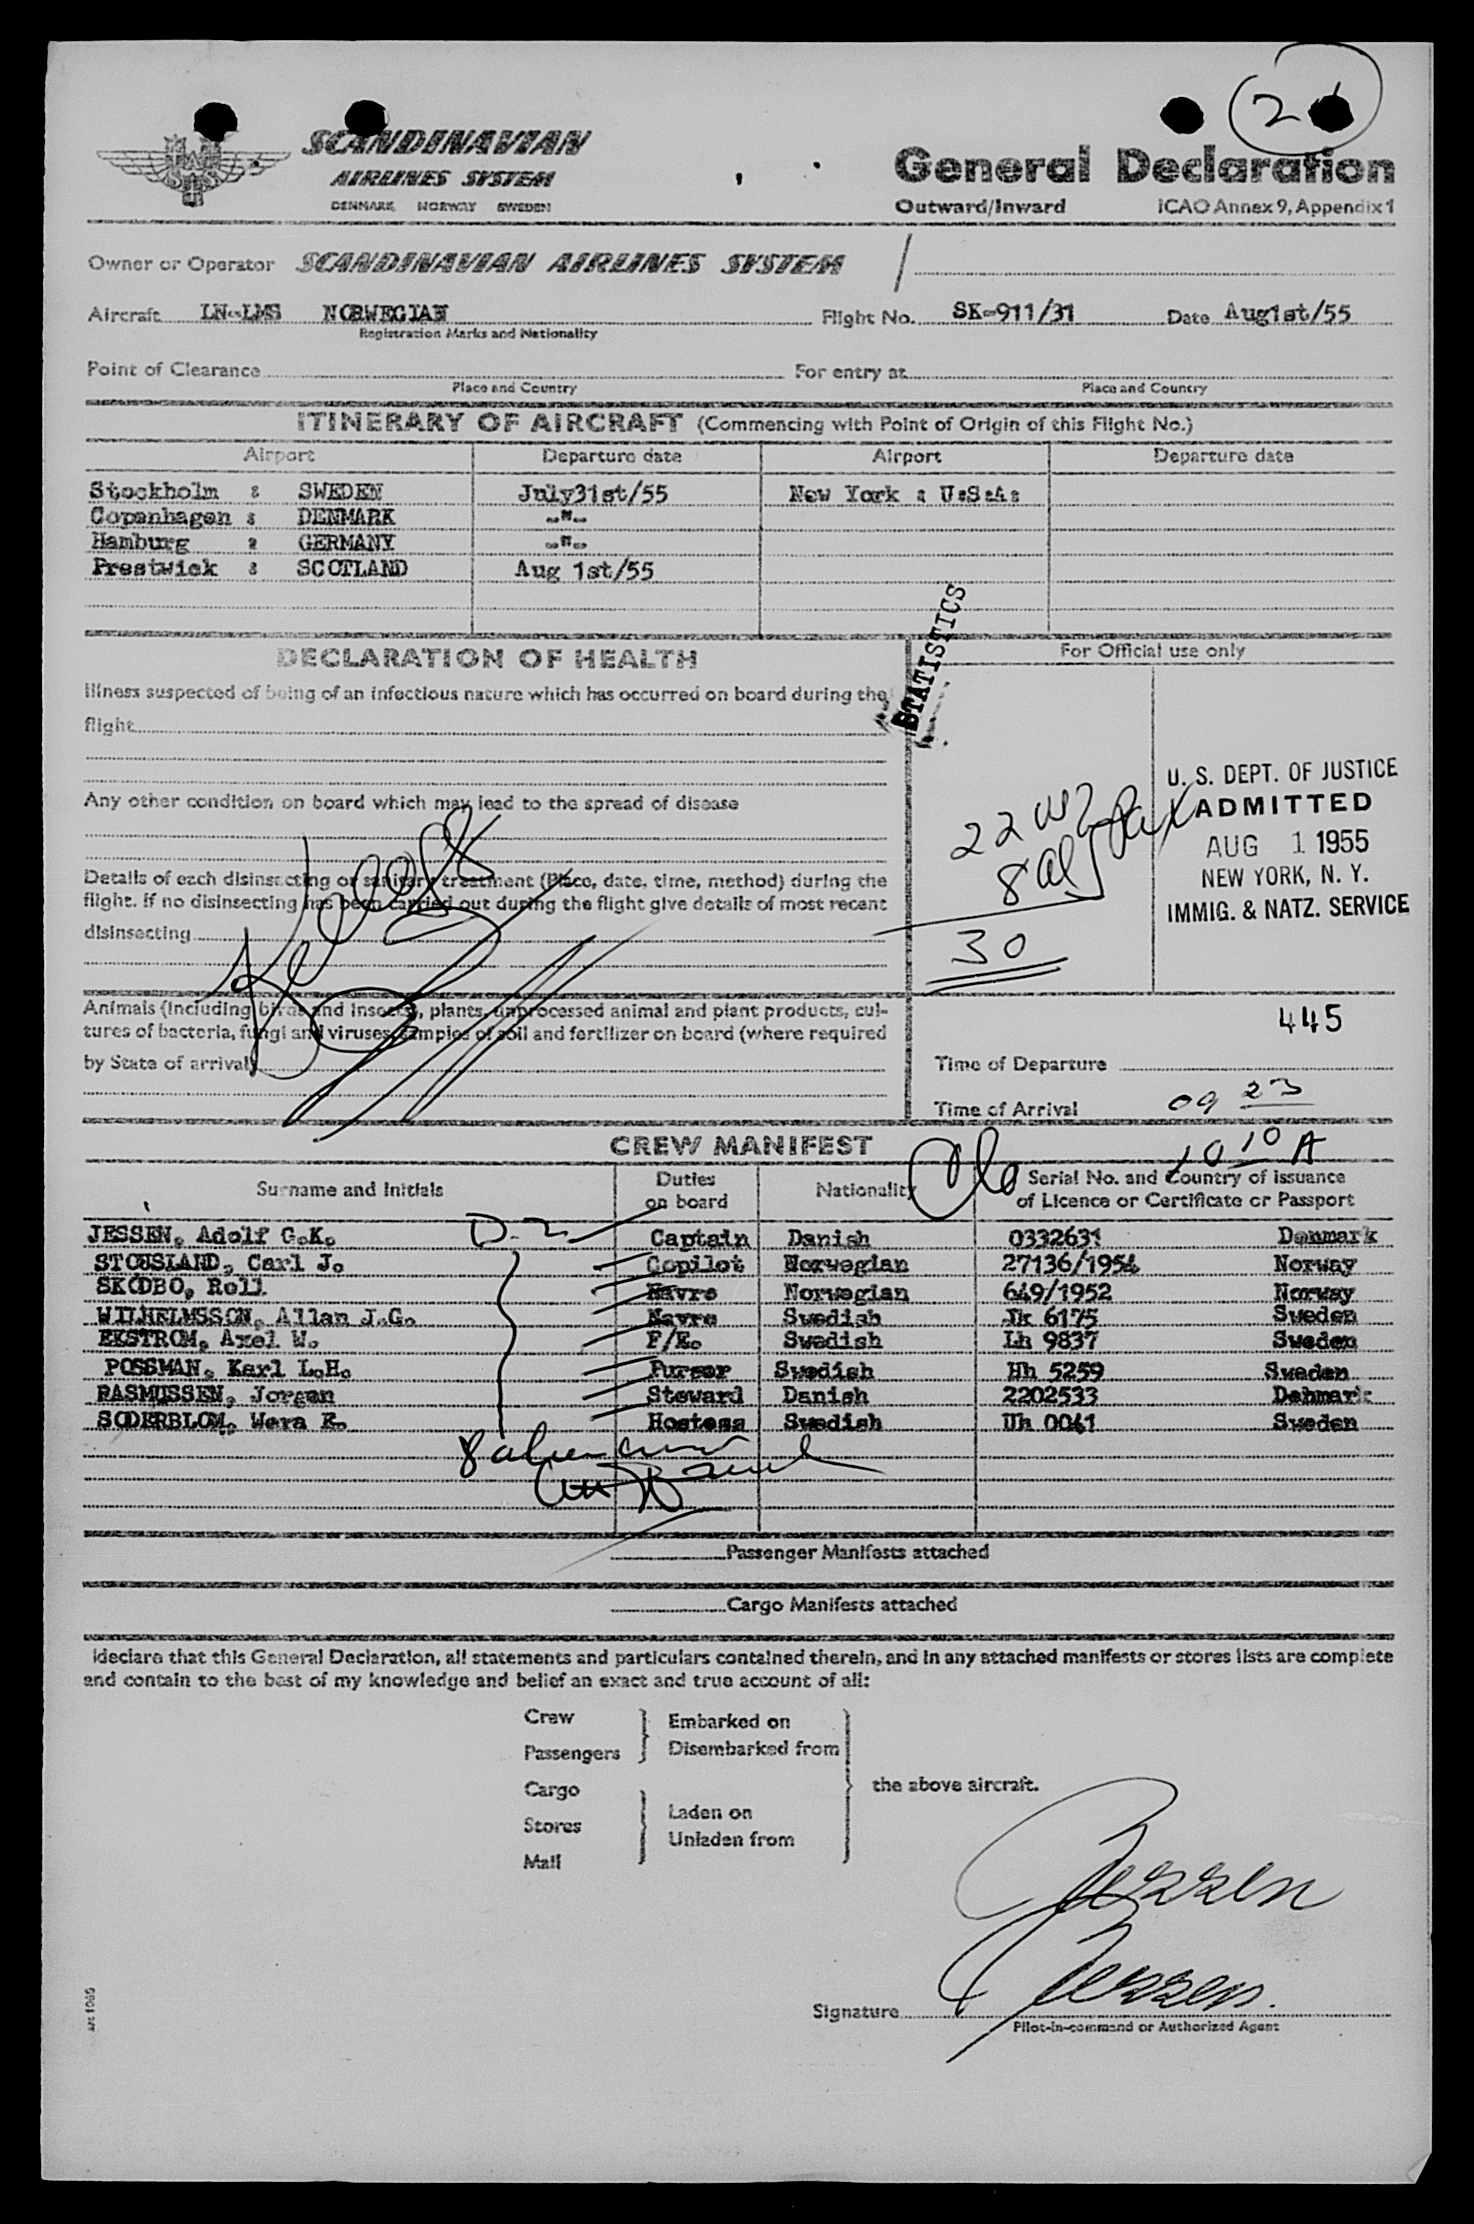 2
SCANDINAVIAN
AIRLINES SYSTEM
DENMARK NORWAY SWEDEN
General Declaration
Outward/Inward ICAO Annex 9, Appendix 1
Owner or Operator SCANDINAVIAN AIRLINES SYSTEM
Aircraft LN-LMS NORWEGIAN Flight No. SK-911/31 Date Aug1st/55
Registration Marks and Nationality
Point of Clearance For entry at
Place and Country Place and Country
ITINERARY OF AIRCRAFT (Commencing with Point of Origin of this Flight No.)
Airport Departure date Airport Departure date
Stockholm : SWEDEN July31st/55 New York : U.S.A:
Copenhagen : DENMARK -"-
Hamburg : GERMANY -"-
Prestwick : SCOTLAND Aug 1st/55
STATISTICS
DECLARATION OF HEALTH
For Official use only
Illness suspected of being of an infectious nature which has occurred on board during the
flight
Any other condition on board which may lead to the spread of disease
Details of each disinsecting or sanitary treatment (Place, date, time, method) during the
flight. If no disinsecting has been carried out during the flight give details of most recent
disinsecting
22 US
8 al Pax
30
U. S. DEPT. OF JUSTICE
ADMITTED
AUG 1 1955
NEW YORK, N. Y.
IMMIG. & NATZ. SERVICE
Animals (including birds and insects), plants, unprocessed animal and plant products, cul-
tures of bacteria, fungi and viruses, samples of soil and fertilizer on board (where required
by State of arrival)
445
Time of Departure
Time of Arrival 09 23
10 10 A
CREW MANIFEST
Surname and Initials Duties on board Nationality Serial No. and Country of issuance of Licence or Certificate or Passport
JESSEN, Adolf G.K. D-2 Captain Danish 0332631 Denmark
STOUSLAND, Carl J. Copilot Norwegian 27136/1954 Norway
SKODBO, Rolf Navre Norwegian 649/1952 Norway
WILHELMSSON, Allan J.G. Navre Swedish Jk 6175 Sweden
EKSTROM, Axel W. F/E. Swedish Lh 9837 Sweden
POSSMAN, Karl L.H. Purser Swedish Hh 5259 Sweden
RASMUSSEN, Jorgen Steward Danish 2202533 Dehmark
SODERBLOM, Wera E. Hostess Swedish Uh 0041 Sweden
8 alien crew
Passenger Manifests attached
Cargo Manifests attached
I declare that this General Declaration, all statements and particulars contained therein, and in any attached manifests or stores lists are complete
and contain to the best of my knowledge and belief an exact and true account of all:
Crew Embarked on
Passengers Disembarked from
Cargo the above aircraft.
Stores Laden on
Mail Unladen from
Jessen
Jessen.
Signature
Pilot-in-command or Authorized Agent